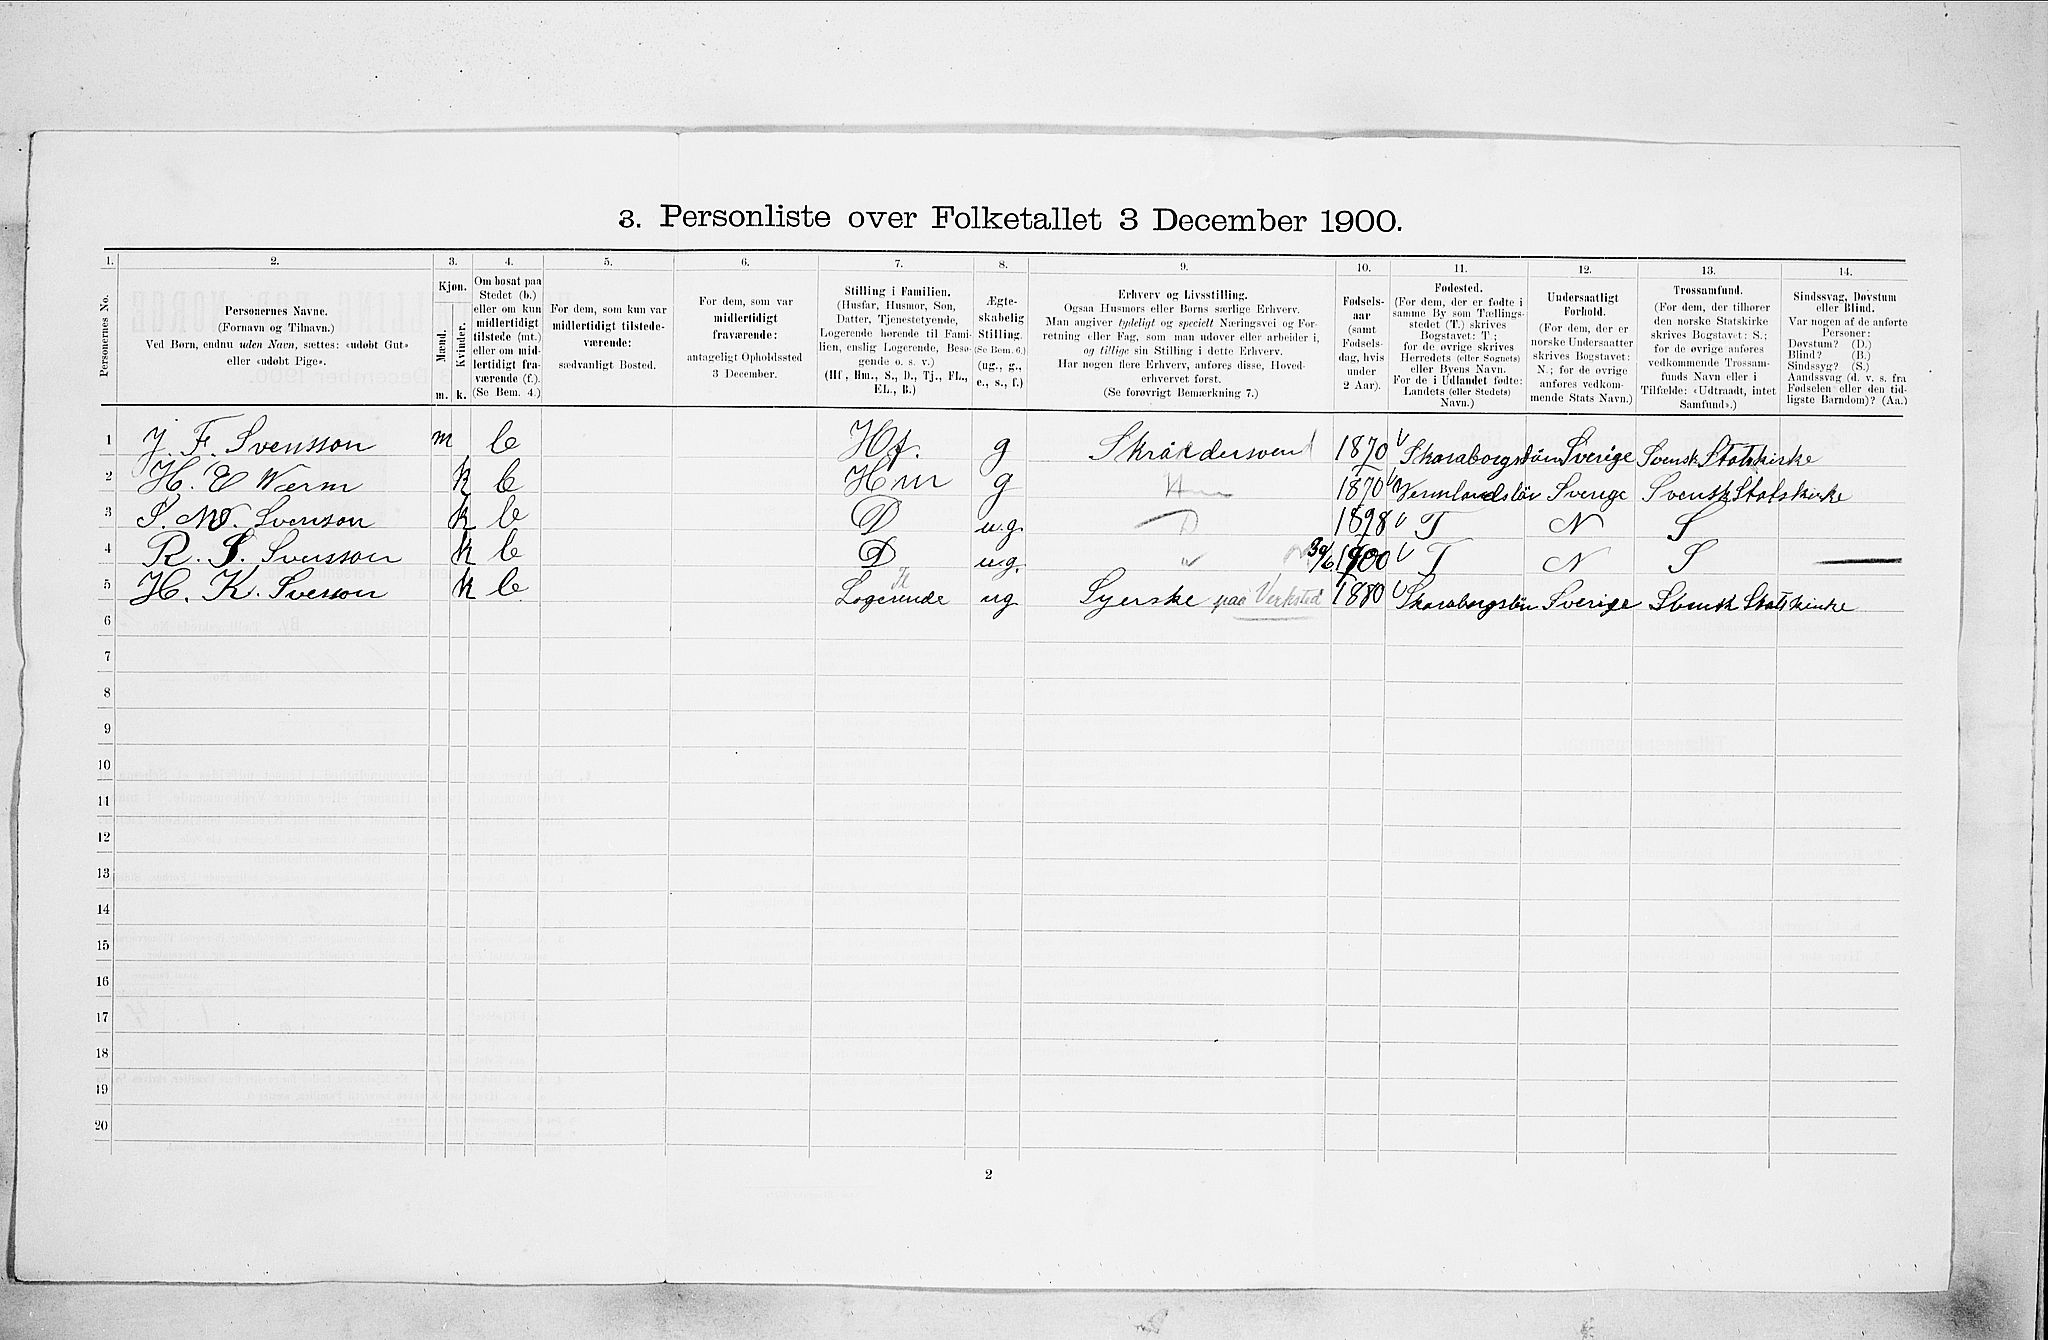 3. Personliste over Folketallet 3 December 1900.
1. 2. 3. 4. 5. 6. 7. 8. 9. 10. 11. 12. 13. 14.
Personernes No.
Personernes Navne.
(Fornavn og Tilnavn.)
Ved Børn, endnu uden Navn, sættes: «udøbt Gut»
eller «udøbt Pige».
Kjøn.
Mænd.
Kvinder.
m. k.
Om bosat paa
Stedet (b.)
eller om kun
midlertidigt
tilstede (mt.)
eller om mid-
lertidigt fra-
værende (f.).
(Se Bem. 4.)
For dem, som kun var
midlertidigt tilstede-
værende:
sædvanligt Bosted.
For dem, som var
midlertidigt
fraværende:
antageligt Opholdssted
3 December.
Stilling i Familien.
(Husfar, Husmor, Søn,
Datter, Tjenestetyende,
Logerende hørende til Fami-
lien, enslig Logerende, Besø-
gende o. s. v.)
(Hf, Hm., S., D., Tj., FL.,
EL., B.)
Ægte-
skabelig
Stilling.
(Se Bem. 6.)
(ug., g.,
e., s., f.)
Erhverv og Livsstilling.
Ogsaa Husmors eller Børns særlige Erhverv.
Man angiver tydeligt og specielt Næringsvei og For-
retning eller Fag, som man udøver eller arbeider i,
og tillige sin Stilling i dette Erhverv.
Har nogen flere Erhverv, anføres disse, Hoved-
erhvervet først.
(Se forøvrigt Bemærkning 7.)
Fødsels-
aar
(samt
Fødsels-
dag, hvis
under
2 Aar).
Fødested.
(For dem, der er fødte i
samme By som Tællings-
stedet (T.) skrives
Bogstavet: T;
for de øvrige skrives
Herredets (eller Sognets)
eller Byens Navn.
For de i Udlandet fødte:
Landets (eller Stedets)
Navn.)
Undersaatligt
Forhold.
(For dem, der er
norske Undersaatter
skrives Bogstavet:
N.; for de øvrige
anføres vedkom-
mende Stats Navn.)
Trossamfund.
(For dem, der tilhører
den norske Statskirke
skrives Bogstavet: S.;
for de øvrige anføres
vedkommende Trossam-
funds Navn eller i
Tilfælde: «Udtraadt, intet
Samfund».)
Sindssvag, Døvstum
eller Blind.
Var nogen af de anførte
Personer:
Døvstum? (D.)
Blind? (B.)
Sindssyg? (S.)
Aandssvag (d. v. s. fra
Fødselen eller den tid-
ligste Barndom)? (Aa.)
1 J. F. Svensson m b Hf. g Skräddersvend 1870 Skaraborgslän Sverige Svensk Statskirke
2 H. E Werm k b Hm g Hm 1870 Vermlandslän Sverige Svensk Statskirke
3 S. M. Svenson k b D u.g. D 1898 T N S
4 R. S. Svensson k b D u.g. " 30/6 1900 T N S
5 H. K. Svenson k b Logerende ug Syerske paa Verksted 1880 Skaraborgslän Sverige Svensk Statskirke
6
7
8
9
10
11
12
13
14
15
16
17
18
19
20
2